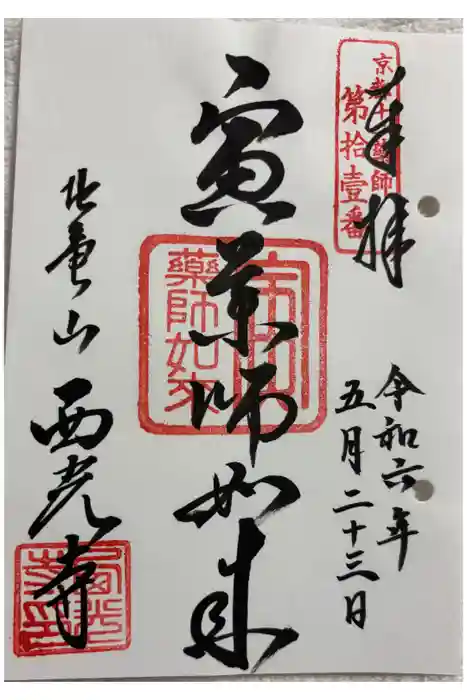 奉拝
京都十二薬師
第拾壹番
令和六年
五月二十三日
寅薬師如来
藥師如來
西光寺